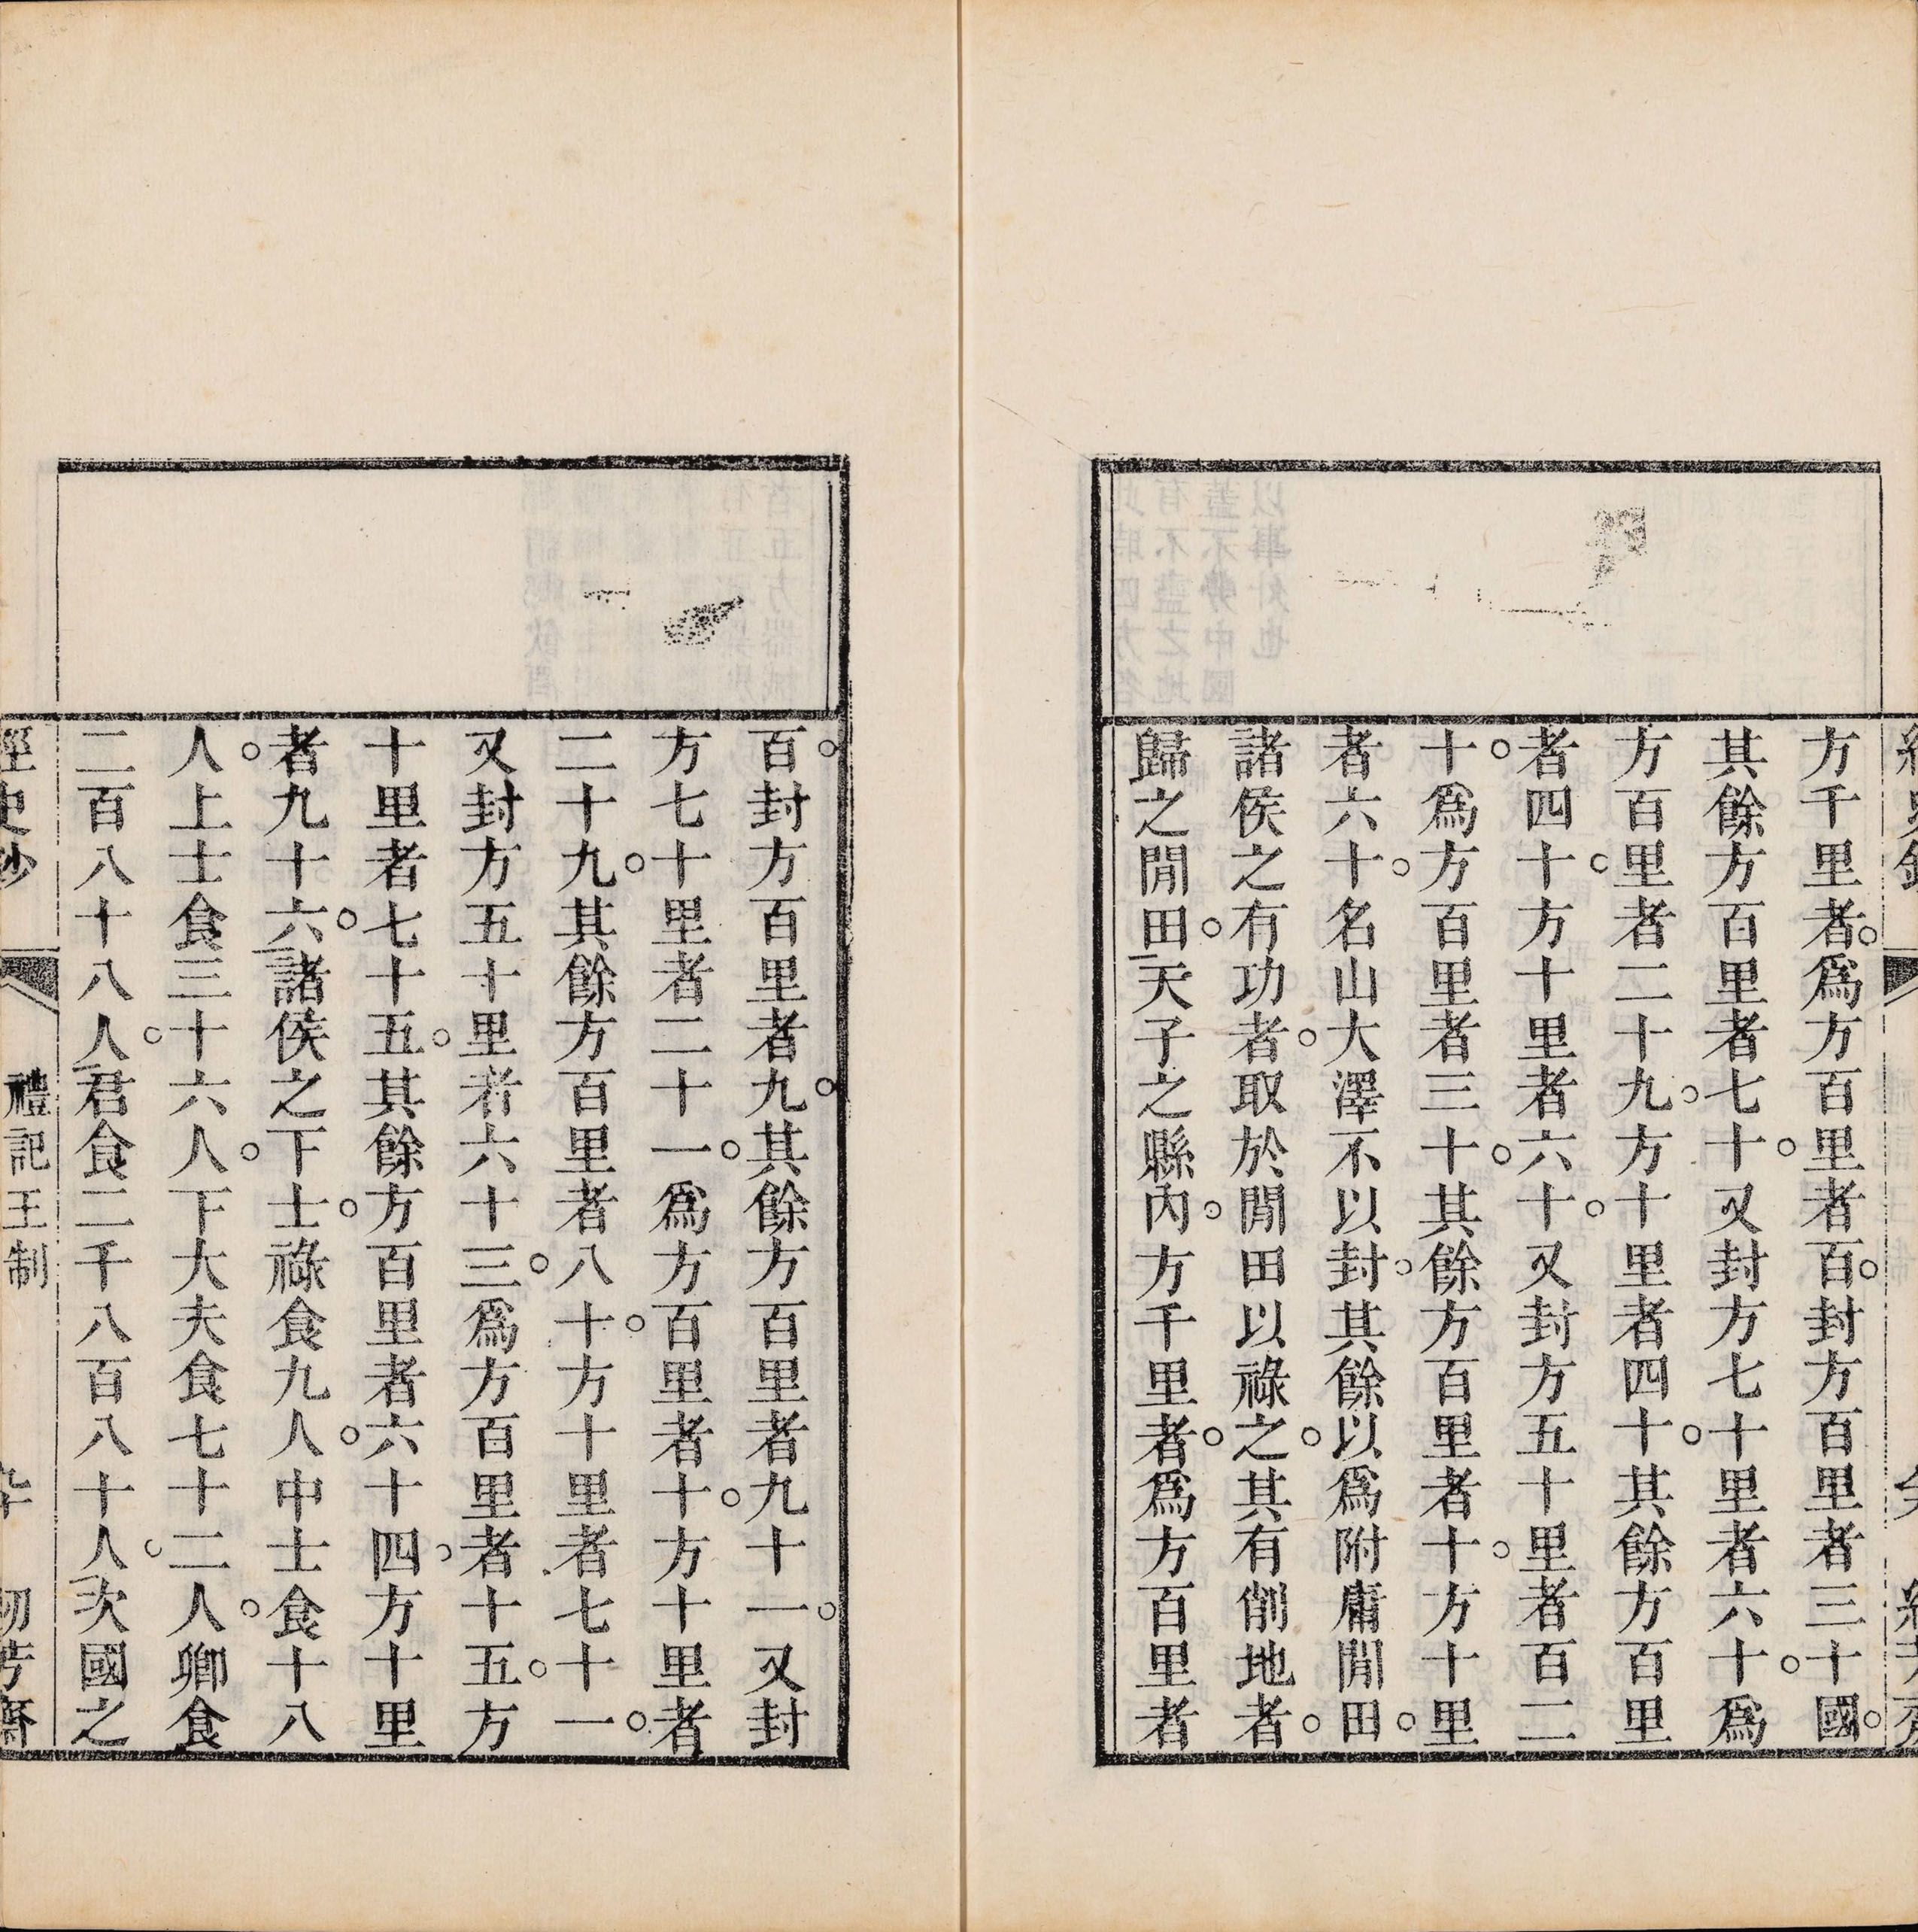 方千里者。爲方百里者百。封方百里者三十國。
其餘方百里者七十。又封方七十里者六十。爲
方百里者二十九。方十里者四十。其餘方百里
者四十。方十里者六十。又封方五十里者百二
十。爲方百里者三十。其餘方百里者十。方十里
者六十。名山大澤不以封。其餘以爲附庸閒田。
諸侯之有功者。取於閒田以祿之。其有削地者。
歸之閒田。天子之縣內。方千里者。爲方百里者
百。封方百里者九。其餘方百里者九十一。又封
方七十里者二十一。爲方百里者十。方十里者
二十九。其餘方百里者八十。方十里者七十一。
又封方五十里者六十三。爲方百里者十五。方
十里者七十五。其餘方百里者六十四。方十里
者九十六。諸侯之下士。祿食九人。中士食十八
人。上士食三十六人。下大夫食七十二人。卿食
二百八十八人。君食二千八百八十人。次國之
經史鈔 禮記王制